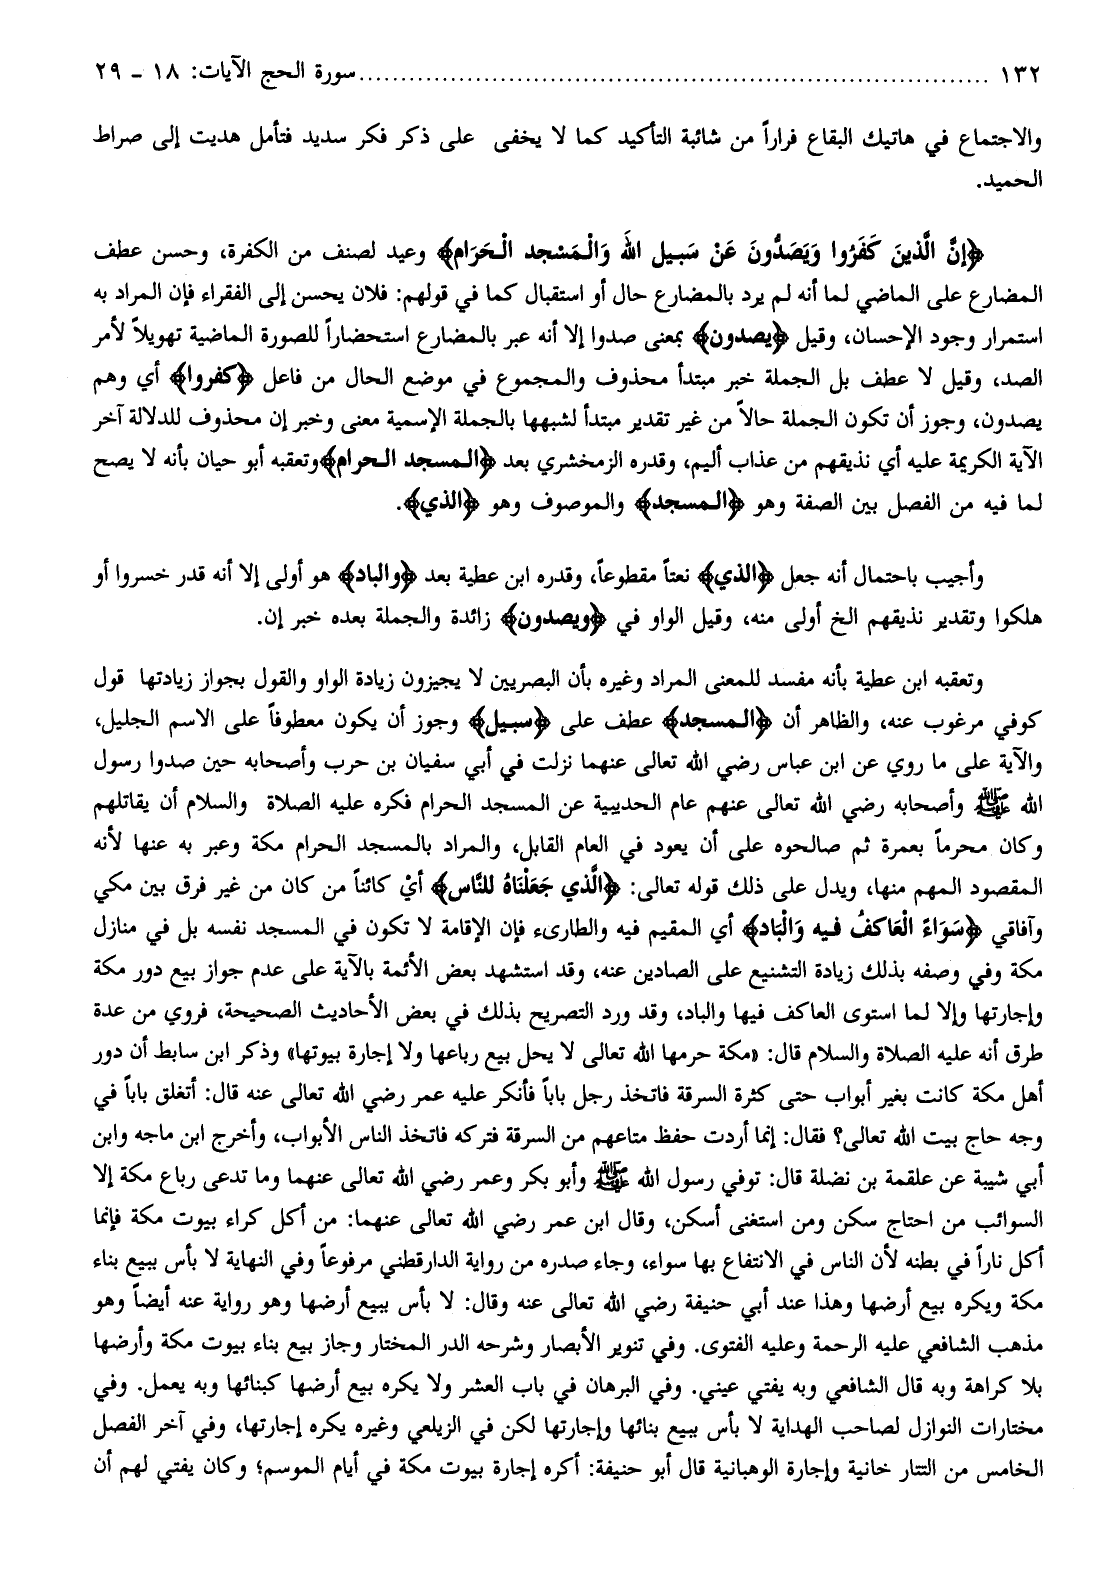 ١٣٢ ............................................................ سورة الحج الآيات: ١٨ ـ ٢٩
والاجتماع في هاتيك البقاع فراراً من شائبة التأكيد كما لا يخفى على ذكر فكر سديد فتأمل هديت إلى صراط
الحميد.
﴿إنَّ الَّذينَ كَفَرُوا وَيَصَدُّونَ عَنْ سَبيل اللهَ وَالْمَسْجد الْحَرَام﴾ وعيد لصنف من الكفرة، وحسن عطف
المضارع على الماضي لما أنه لم يرد بالمضارع حال أو استقبال كما في قولهم: فلان يحسن إلى الفقراء فإن المراد به
استمرار وجود الإحسان، وقيل ﴿يصدون﴾ بمعنى صدوا إلا أنه عبر بالمضارع استحضاراً للصورة الماضية تهويلاً لأمر
الصد، وقيل لا عطف بل الجملة خبر مبتدأ محذوف والمجموع في موضع الحال من فاعل ﴿كفروا﴾ أي وهم
يصدون، وجوز أن تكون الجملة حالاً من غير تقدير مبتدأ لشبهها بالجملة الإسمية معنى وخبر إن محذوف للدلالة آخر
الآية الكريمة عليه أي نذيقهم من عذاب أليم، وقدره الزمخشري بعد ﴿المسجد الحرام﴾وتعقبه أبو حيان بأنه لا يصح
لما فيه من الفصل بين الصفة وهو ﴿المسجد﴾ والموصوف وهو ﴿الذي﴾.
وأجيب باحتمال أنه جعل ﴿الذي﴾ نعتاً مقطوعاً، وقدره ابن عطية بعد ﴿والباد﴾ هو أولى إلا أنه قدر خسروا أو
هلكوا وتقدير نذيقهم الخ أولى منه، وقيل الواو في ﴿ويصدون﴾ زائدة والجملة بعده خبر إن.
وتعقبه ابن عطية بأنه مفسد للمعنى المراد وغيره بأن البصريين لا يجيزون زيادة الواو والقول بجواز زيادتها قول
كوفي مرغوب عنه، والظاهر أن ﴿المسجد﴾ عطف على ﴿سبيل﴾ وجوز أن يكون معطوفاً على الاسم الجليل،
والآية على ما روي عن ابن عباس رضي الله تعالى عنهما نزلت في أبي سفيان بن حرب وأصحابه حين صدوا رسول
الله ﷺ وأصحابه رضي الله تعالى عنهم عام الحديبية عن المسجد الحرام فكره عليه الصلاة والسلام أن يقاتلهم
وكان محرماً بعمرة ثم صالحوه على أن يعود في العام القابل، والمراد بالمسجد الحرام مكة وعبر به عنها لأنه
المقصود المهم منها، ويدل على ذلك قوله تعالى: ﴿الَّذي جَعَلْنَاهُ للنَّاس﴾ أيْ كائناً من كان من غير فرق بين مكي
وآفاقي ﴿سَوَاءً الْعَاكفُ فيه وَالْبَاد﴾ أي المقيم فيه والطارىء فإن الإقامة لا تكون في المسجد نفسه بل في منازل
مكة وفي وصفه بذلك زيادة التشنيع على الصادين عنه، وقد استشهد بعض الأئمة بالآية على عدم جواز بيع دور مكة
وإجارتها وإلا لما استوى العاكف فيها والباد، وقد ورد التصريح بذلك في بعض الأحاديث الصحيحة، فروي من عدة
طرق أنه عليه الصلاة والسلام قال: «مكة حرمها الله تعالى لا يحل بيع رباعها ولا إجارة بيوتها» وذكر ابن سابط أن دور
أهل مكة كانت بغير أبواب حتى كثرة السرقة فاتخذ رجل باباً فأنكر عليه عمر رضي الله تعالى عنه قال: أتغلق باباً في
وجه حاج بيت الله تعالى؟ فقال: إنما أردت حفظ متاعهم من السرقة فتركه فاتخذ الناس الأبواب، وأخرج ابن ماجه وابن
أبي شيبة عن علقمة بن نضلة قال: توفي رسول الله ﷺ وأبو بكر وعمر رضي الله تعالى عنهما وما تدعى رباع مكة إلا
السوائب من احتاج سكن ومن استغنى أسكن، وقال ابن عمر رضي الله تعالى عنهما: من أكل كراء بيوت مكة فإنما
أكل ناراً في بطنه لأن الناس في الانتفاع بها سواء، وجاء صدره من رواية الدارقطني مرفوعاً وفي النهاية لا بأس ببيع بناء
مكة ويكره بيع أرضها وهذا عند أبي حنيفة رضي الله تعالى عنه وقال: لا بأس ببيع أرضها وهو رواية عنه أيضاً وهو
مذهب الشافعي عليه الرحمة وعليه الفتوى. وفي تنوير الأبصار وشرحه الدر المختار وجاز بيع بناء بيوت مكة وأرضها
بلا كراهة وبه قال الشافعي وبه يفتي عيني. وفي البرهان في باب العشر ولا يكره بيع أرضها كبنائها وبه يعمل. وفي
مختارات النوازل لصاحب الهداية لا بأس ببيع بنائها وإجارتها لكن في الزيلعي وغيره يكره إجارتها، وفي آخر الفصل
الخامس من التتار خانية وإجارة الوهبانية قال أبو حنيفة: أكره إجارة بيوت مكة في أيام الموسم؛ وكان يفتي لهم أن